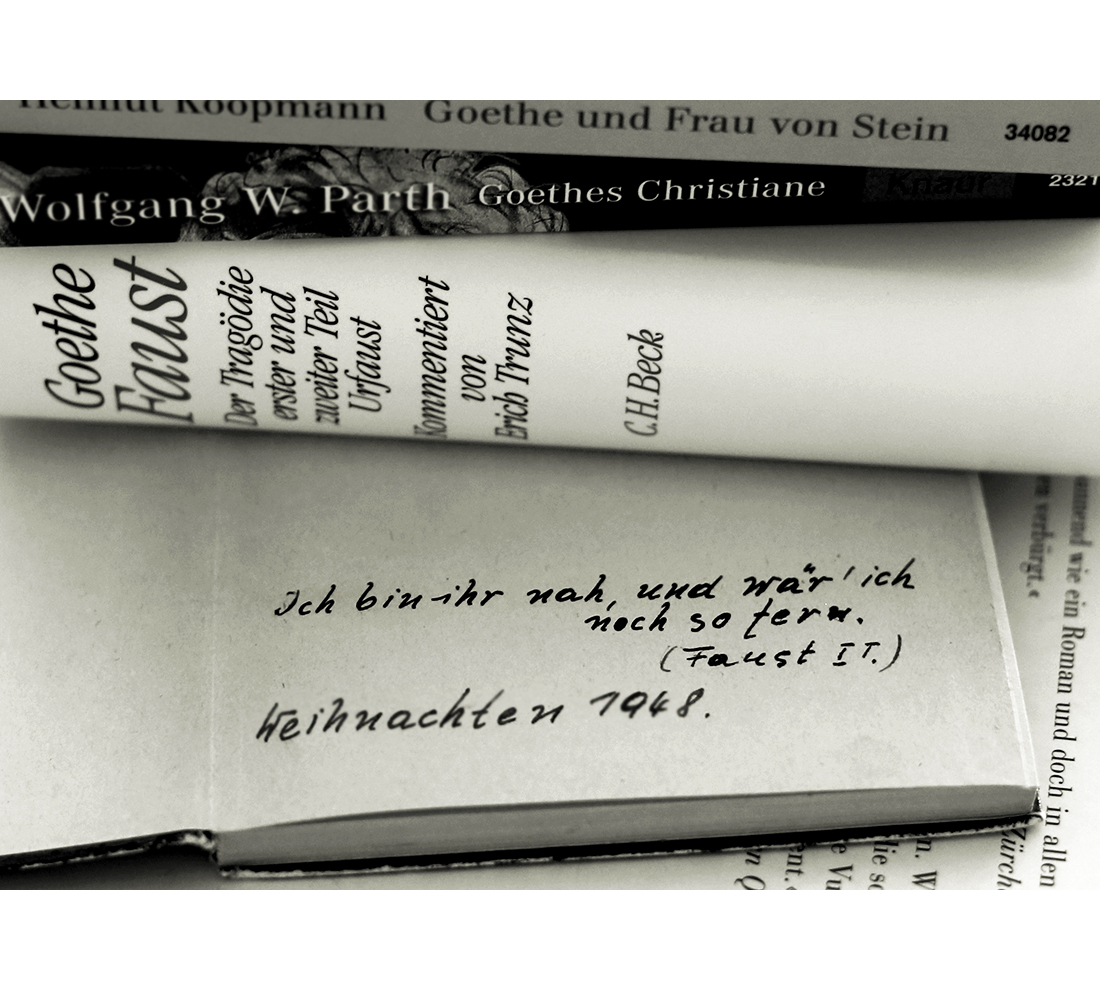 Helmut Koopmann Goethe und Frau von Stein 34082
Wolfgang W. Parth Goethes Christiane Knaur 2321
Goethe
Faust
Der Tragödie
erster und
zweiter Teil
Urfaust
Kommentiert
von
Erich Trunz
C.H.Beck
Ich bin ihr nah, und wär' ich
noch so fern.
(Faust II.)
Weihnachten 1948.
wie ein Roman und doch in allen
verbürgt.«